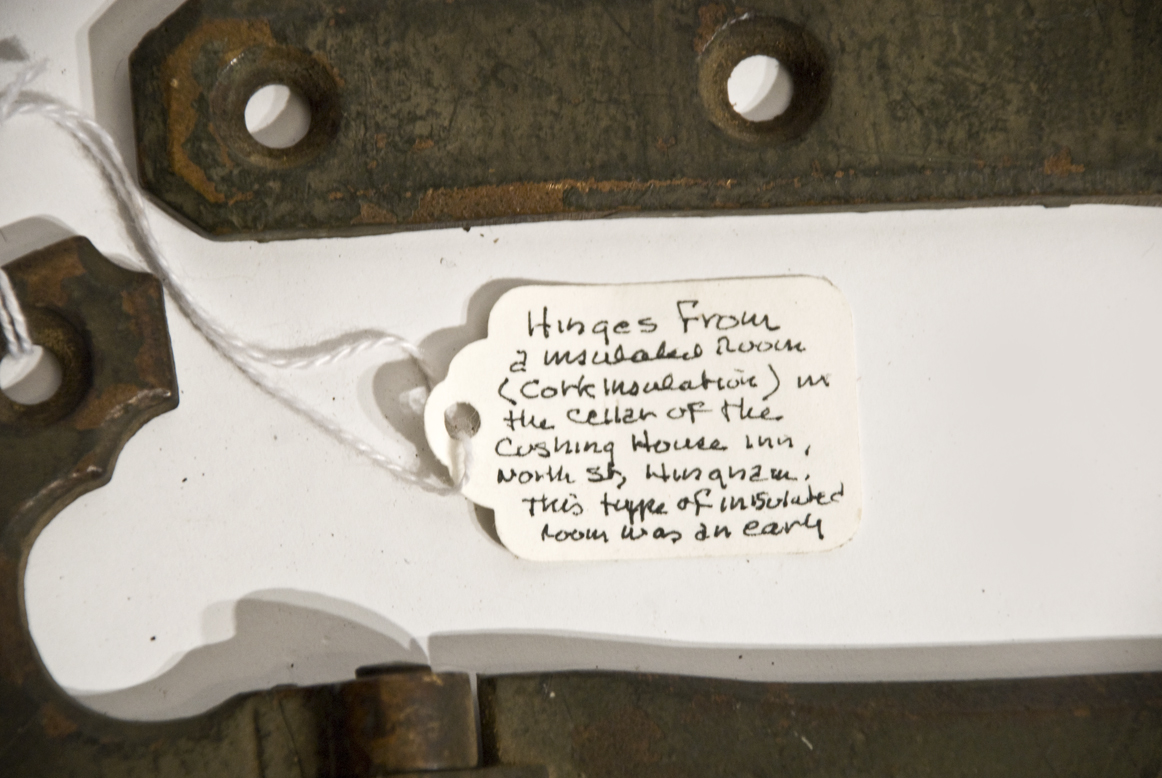 Hinges From
a insulated Room
(Cork Insulation) in
the cellar of the
Cushing House inn,
North St, Hingham.
This type of insulated
room was an early